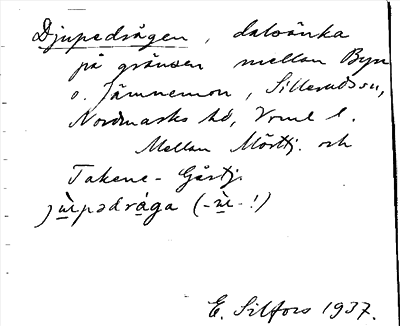 Djupedrågen, dalsänka
på gränsen mellan Byn
o. Jämnemon, Sillerudssn,
Nordmarks hd, Vrml l.
Mellan Mörttj. och
Takene-Gårdtj.
jʉ̀pədråga (-ʉ̀-!)
E. Silfors 1937.